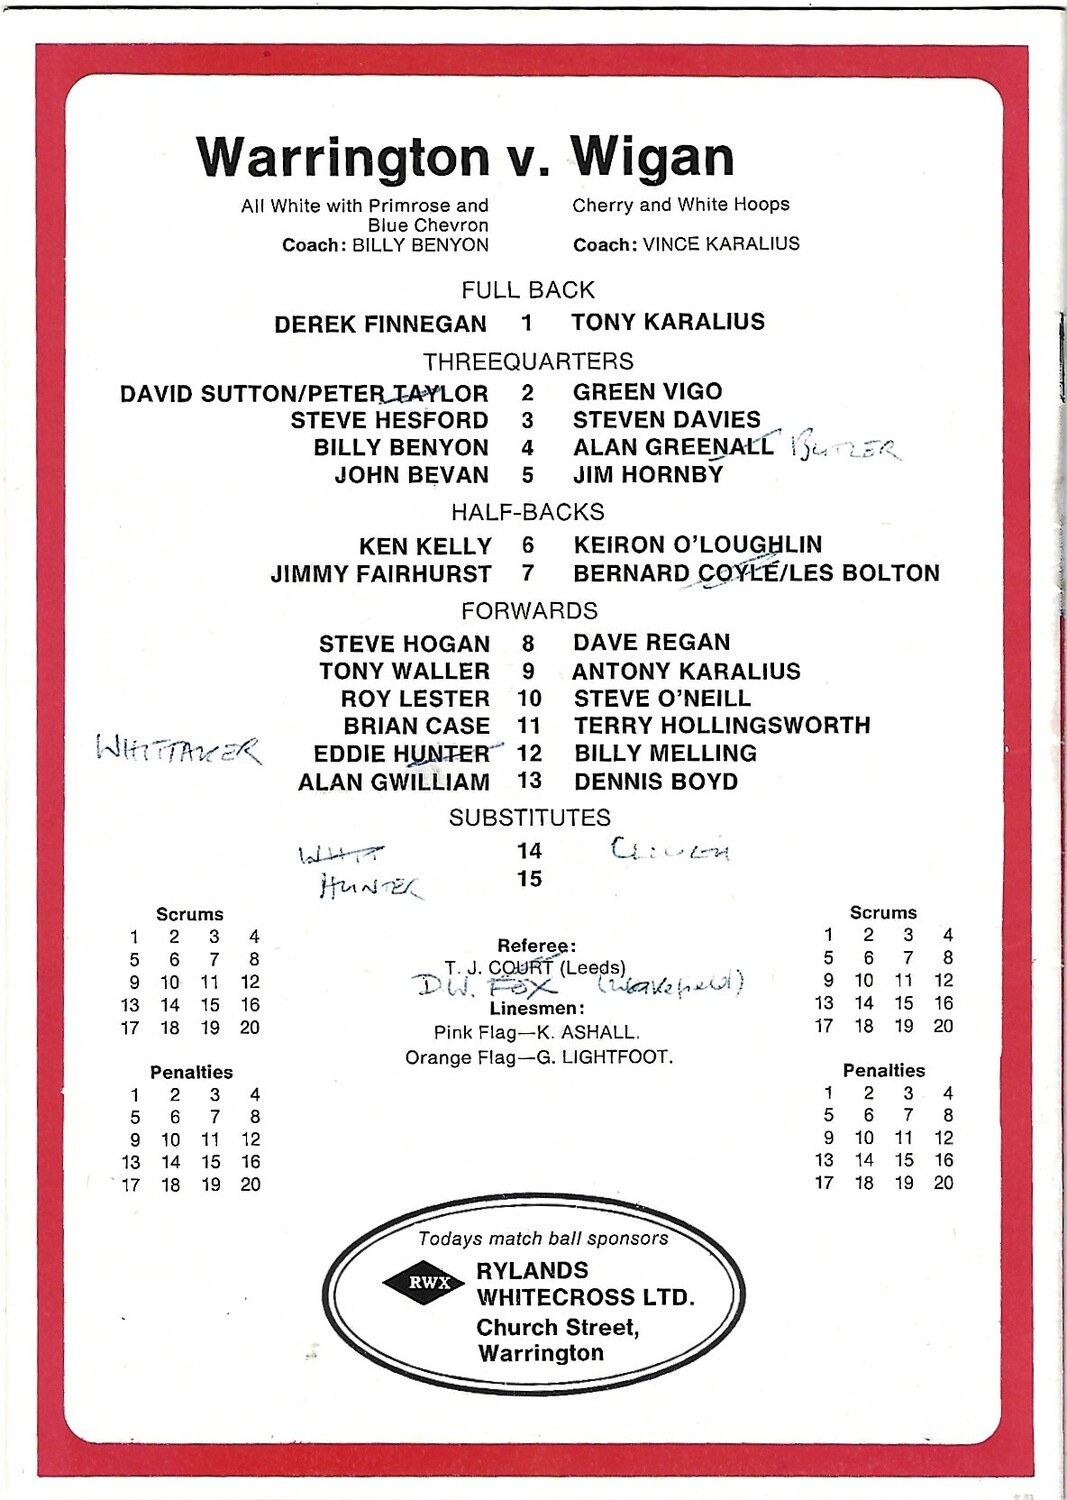 Warrington v. Wigan
All White with Primrose and Cherry and White Hoops
Blue Chevron
Coach: BILLY BENYON Coach: VINCE KARALIUS
FULL BACK
DEREK FINNEGAN 1 TONY KARALIUS
THREEQUARTERS
DAVID SUTTON/PETER TAYLOR 2 GREEN VIGO
STEVE HESFORD 3 STEVEN DAVIES
BILLY BENYON 4 ALAN GREENALL BUTLER
JOHN BEVAN 5 JIM HORNBY
HALF-BACKS
KEN KELLY 6 KEIRON O'LOUGHLIN
JIMMY FAIRHURST 7 BERNARD COYLE/LES BOLTON
FORWARDS
STEVE HOGAN 8 DAVE REGAN
TONY WALLER 9 ANTONY KARALIUS
ROY LESTER 10 STEVE O'NEILL
BRIAN CASE 11 TERRY HOLLINGSWORTH
WHITTAKER EDDIE HUNTER 12 BILLY MELLING
ALAN GWILLIAM 13 DENNIS BOYD
SUBSTITUTES
WHIT 14
HUNTER 15
Scrums
1 2 3 4
5 6 7 8
9 10 11 12
13 14 15 16
17 18 19 20
Penalties
1 2 3 4
5 6 7 8
9 10 11 12
13 14 15 16
17 18 19 20
Referee:
T. J. COURT (Leeds)
D.W. FOX (Wakefield)
Linesmen:
Pink Flag—K. ASHALL.
Orange Flag—G. LIGHTFOOT.
Scrums
1 2 3 4
5 6 7 8
9 10 11 12
13 14 15 16
17 18 19 20
Penalties
1 2 3 4
5 6 7 8
9 10 11 12
13 14 15 16
17 18 19 20
Todays match ball sponsors
RWX RYLANDS
WHITECROSS LTD.
Church Street,
Warrington